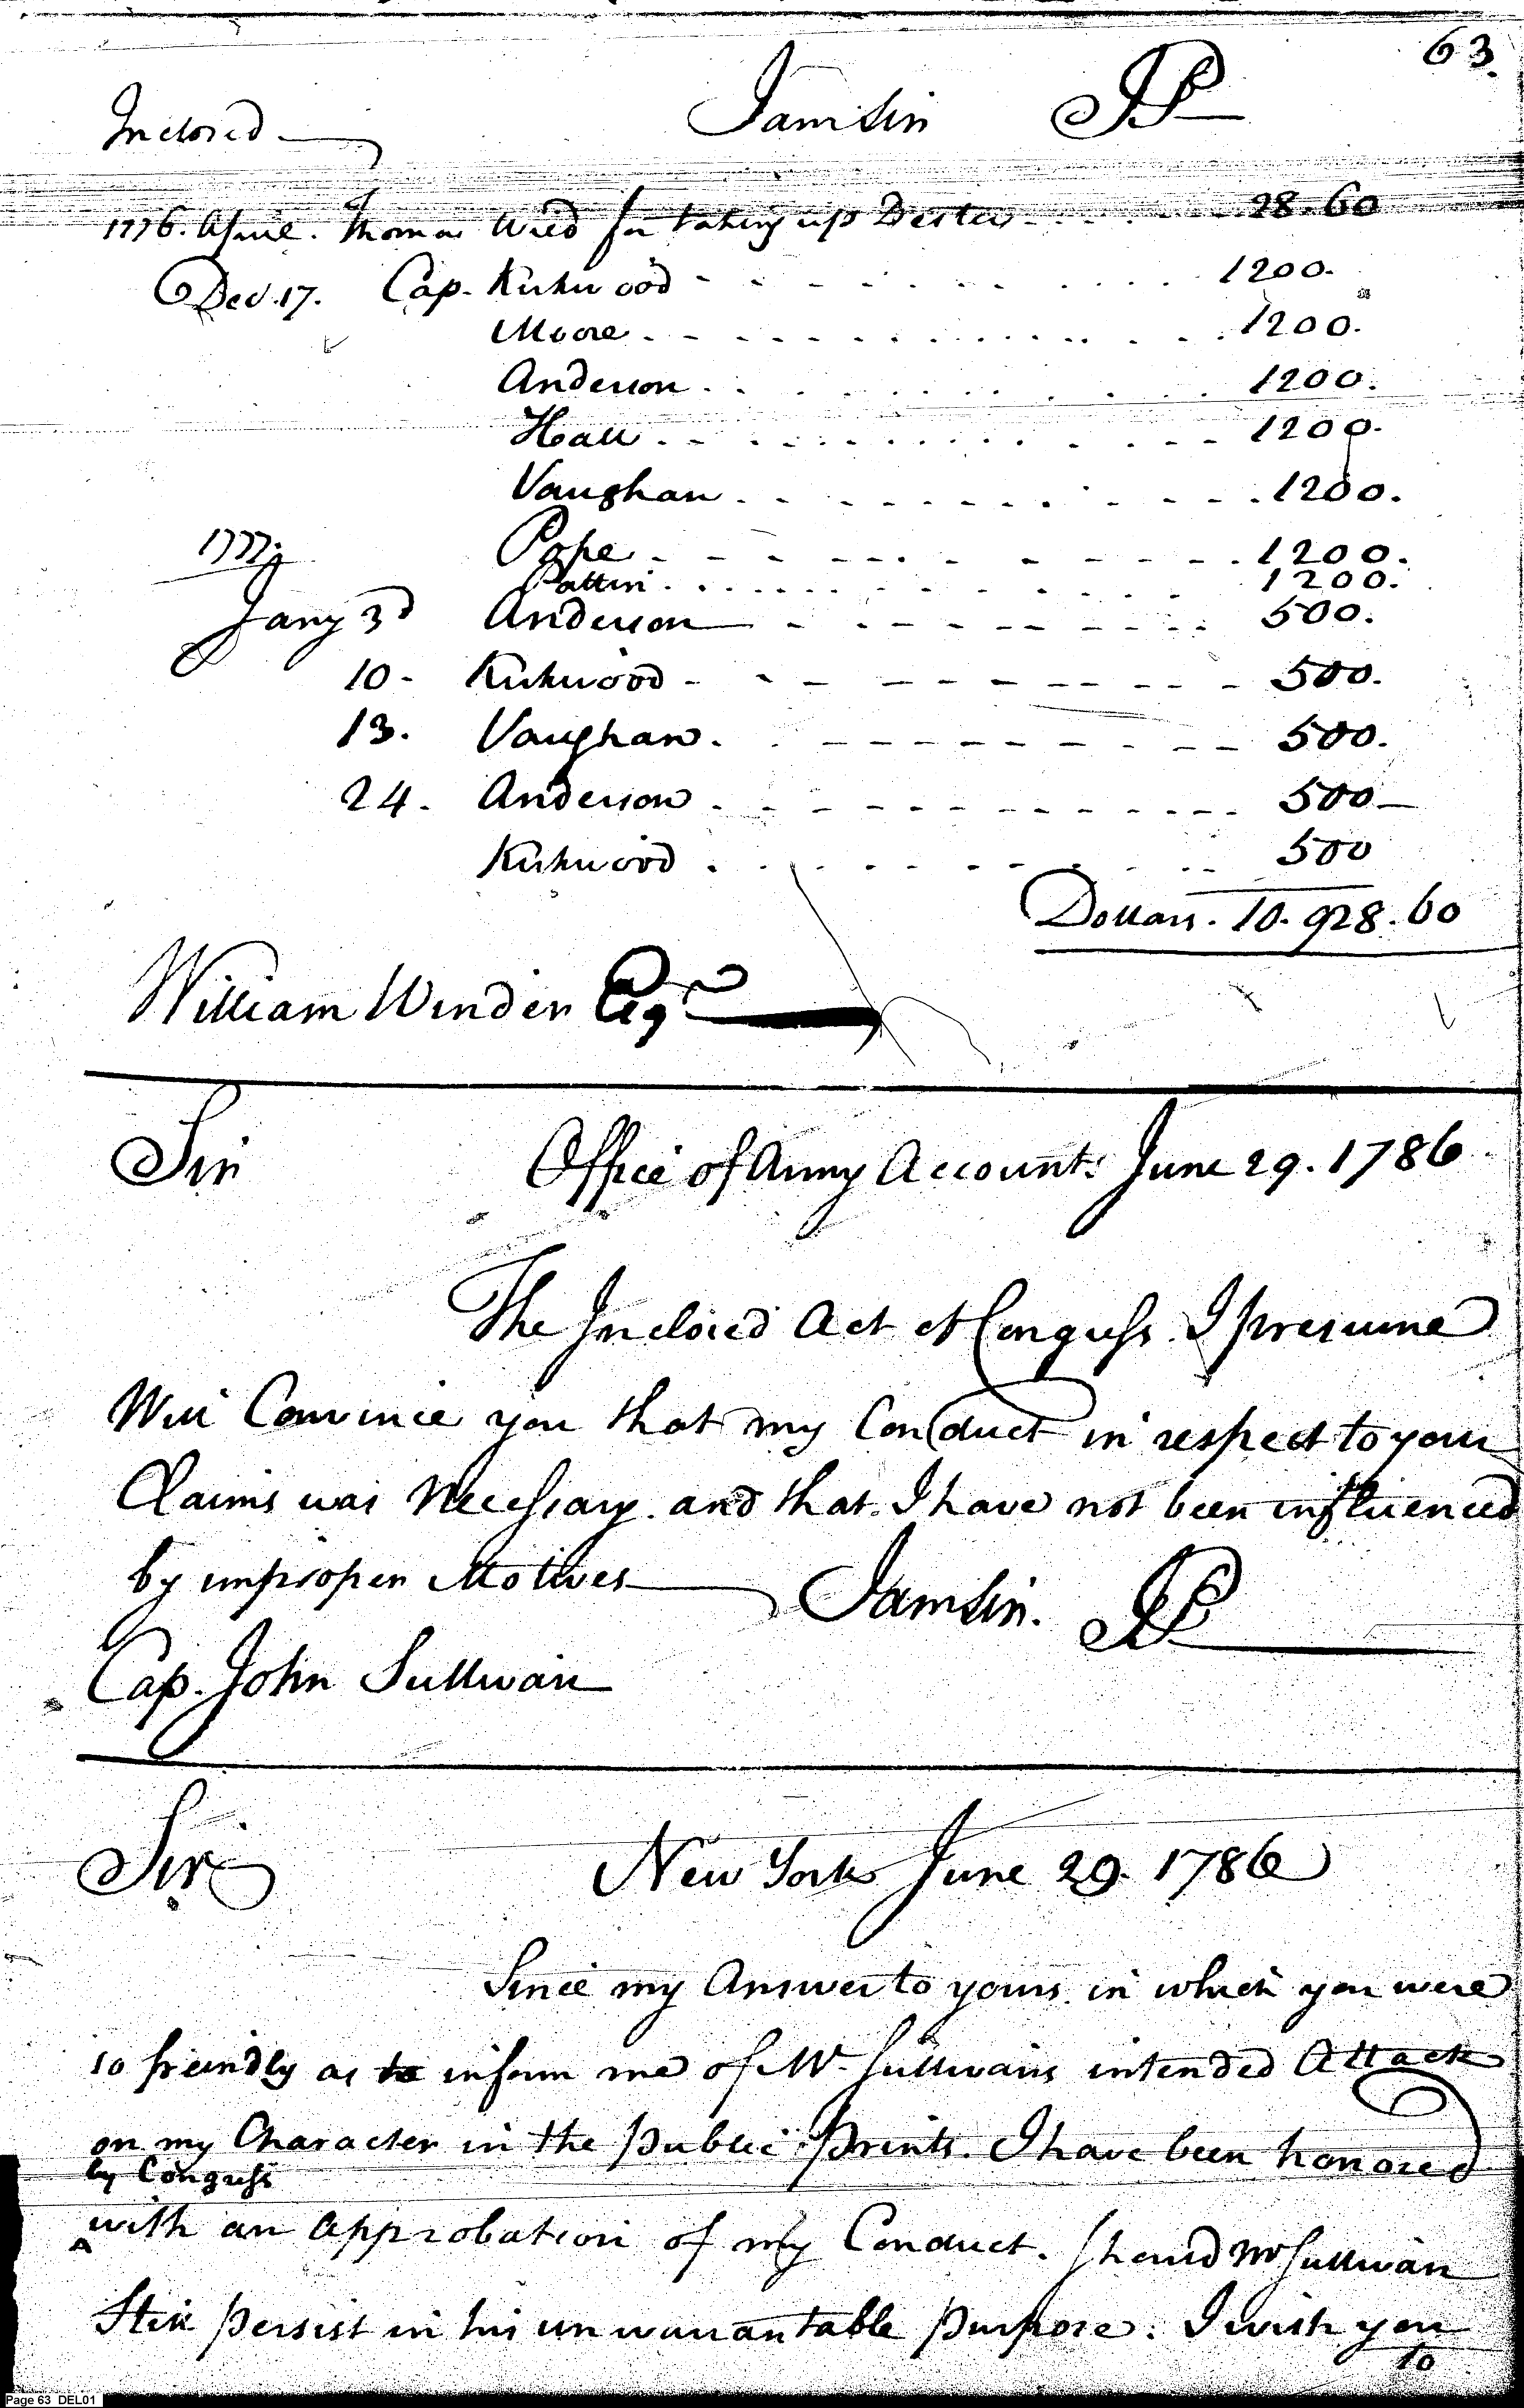 63.
I am Sir JP
Inclosed
1776. April. Thomas Wied for taking up Desters 28.60
Decr. 17. Cap. Kirkwood 1200.
Moore 1200.
Anderson 1200.
Hall 1200.
Vaughan 1200.
1777;
Pope 1200.
Patten 1200.
Jany 3d Anderson 500.
10 - Kirkwood - 500.
13. Vaughan. 500.
24 - Anderson 500
Kirkwood 500
Dollars. 10.928.60
William Winder Esqr
Sir Office of Army Accounts June 29. 1786
The Inclosed Act of Congress I presume
Will Convince you that my Conduct in respect to your
Claims was Necessary. and that I have not been influenced
by improper Motives I am Sir. JP
Cap. John Sullivan
Sir New York June 29. 1786
Since my Answer to yours in which you were
so friendly as to inform me of Mr Sullivans intended Attack
on my Character in the public Prints. I have been honored
by Congress
with an Approbation of my Conduct. Should Mr Sullivan
Still persist in his unwarrantable purpose. I wish you
to
Page 63 DEL01